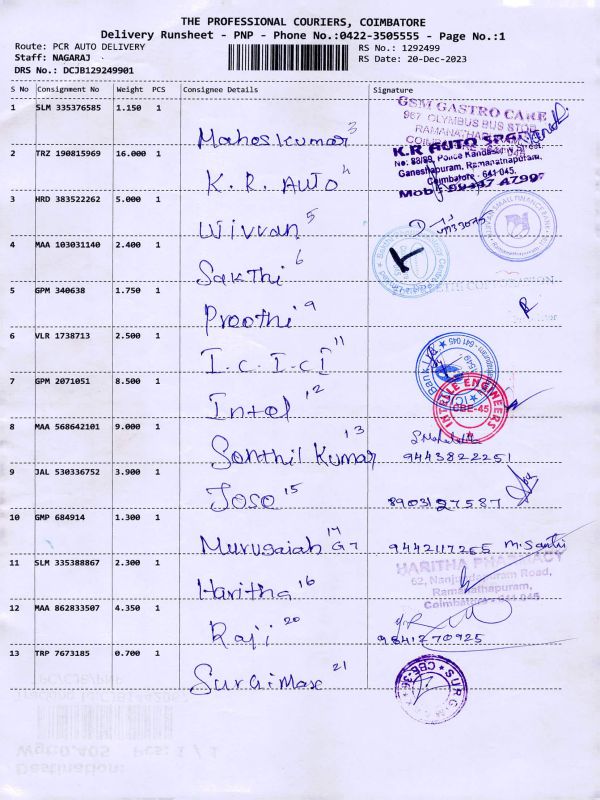 THE PROFESSIONAL COURIERS, COIMBATORE
Delivery Runsheet - PNP - Phone No.:0422-3505555 - Page No.:1
Route: PCR AUTO DELIVERY
RS No.: 1292499
Staff: NAGARAJ
RS Date: 20-Dec-2023
DRS No.: DCJB129249901
S No Consignment No Weight PCS Consignee Details Signature
1 SLM 335376585 1.150 1 Maheskumar 3
GSM GASTRO CARE
967 OLYMBUS BUS STOP
2 TRZ 190815969 16.000 1 K. R. Auto 4
K.R AUTO
Ganeshapuram, Ramanathapuram,
Coimbatore - 641 045.
3 HRD 383522262 5.000 1 Wivran 5
4 MAA 103031140 2.400 1 Sakthi 6
5 GPM 340638 1.750 1 Preethi 9
6 VLR 1738713 2.500 1 I.C.I.CI 11
7 GPM 2071051 8.500 1 Intel 12
CBE-45
8 MAA 568642101 9.000 1 Senthil Kumar 13
9443822251
9 JAL 530336752 3.900 1 Jose 15
8903127587
10 GMP 684914 1.300 1 Murugaiah G7 14
9442117255 M. Santhi
11 SLM 335388867 2.300 1 Haritha 16
HARITHA PHARMACY
62, Nanjundapuram Road,
Ramanathapuram,
Coimbatore - 641 045
12 MAA 862833507 4.350 1 Raji 20
9841270925
13 TRP 7673185 0.700 1 Surgimax 21
CBE-36
Wgt:0.405 Pcs: 1 / 1
Destination: